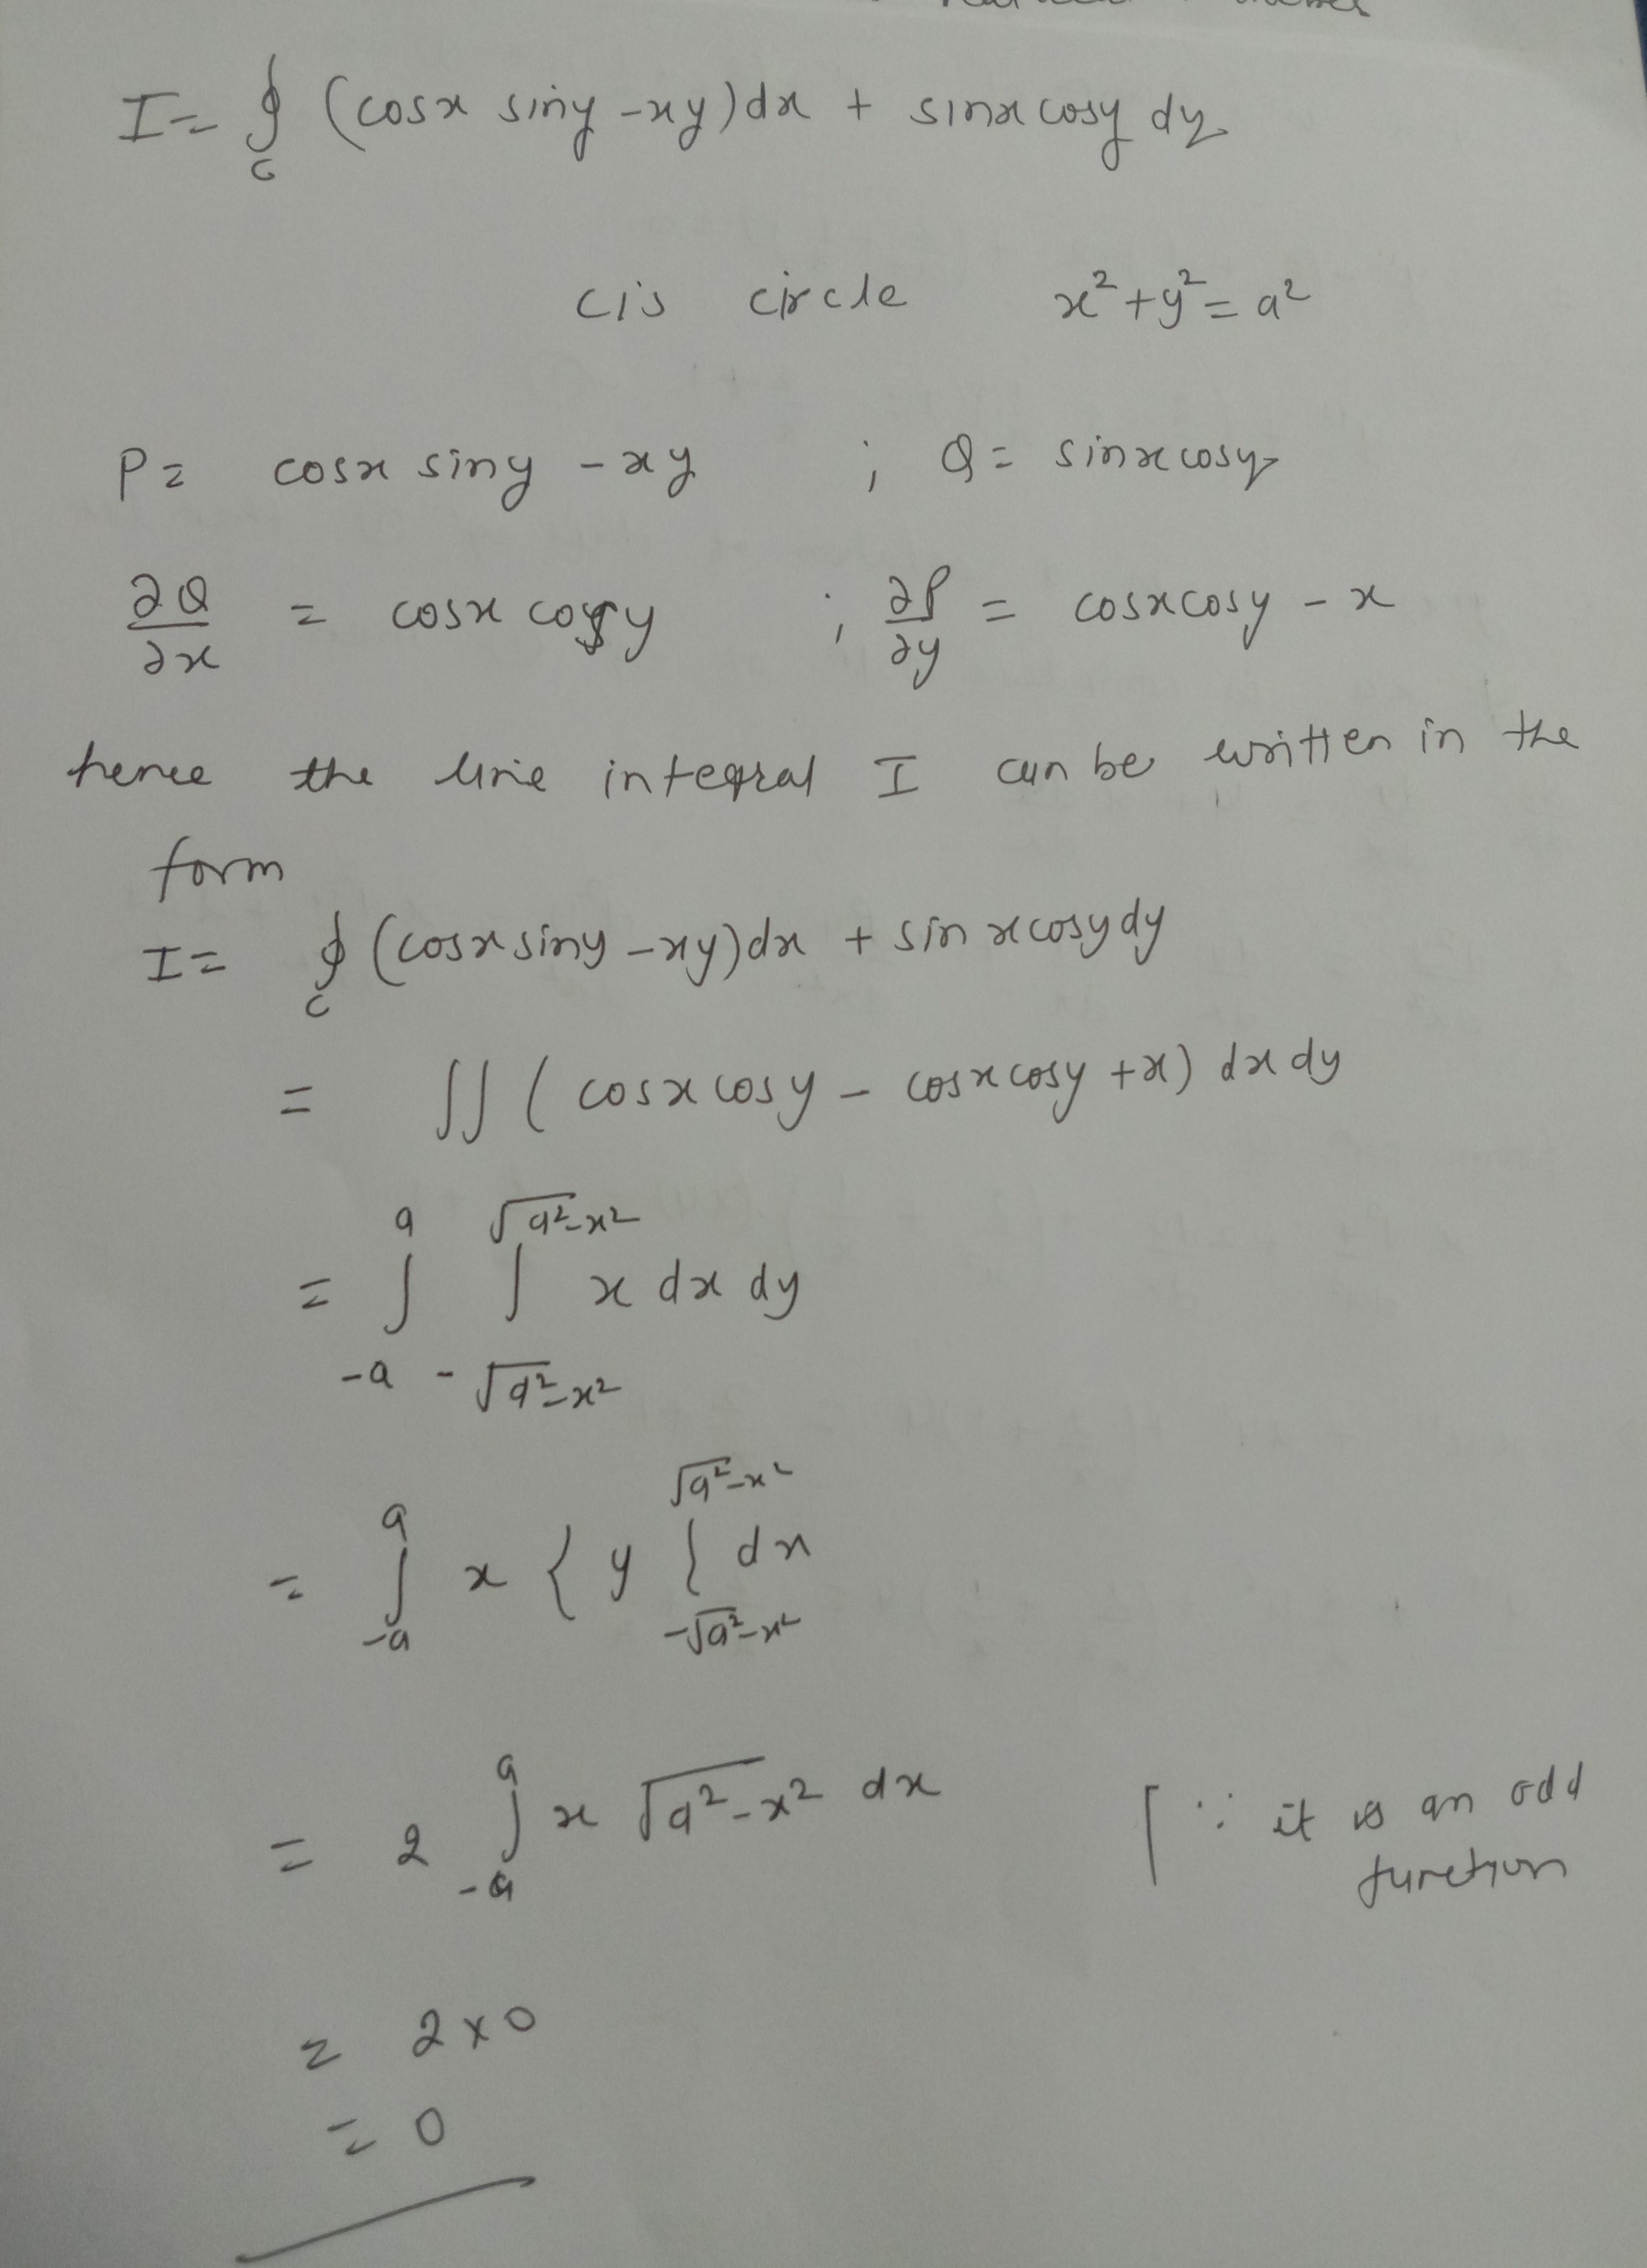 I = ∮_c (cosx siny - xy)dx + sinx cosy dy
c is circle x² + y² = a²
P = cosx siny - xy ; Q = sinx cosy
∂Q/∂x = cosx cosy ; ∂P/∂y = cosx cosy - x
hence the line integral I can be written in the
form
I = ∮_c (cosx siny - xy)dx + sin x cosy dy
= ∬ (cosx cosy - cosx cosy + x) dx dy
= ∫_{-a}^{a} ∫_{-√(a²-x²)}^{√(a²-x²)} x dx dy
= ∫_{-a}^{a} x { y }_{-√(a²-x²)}^{√(a²-x²)} dx
= 2 ∫_{-a}^{a} x √(a²-x²) dx [∵ it is an odd
function
= 2 × 0
= 0